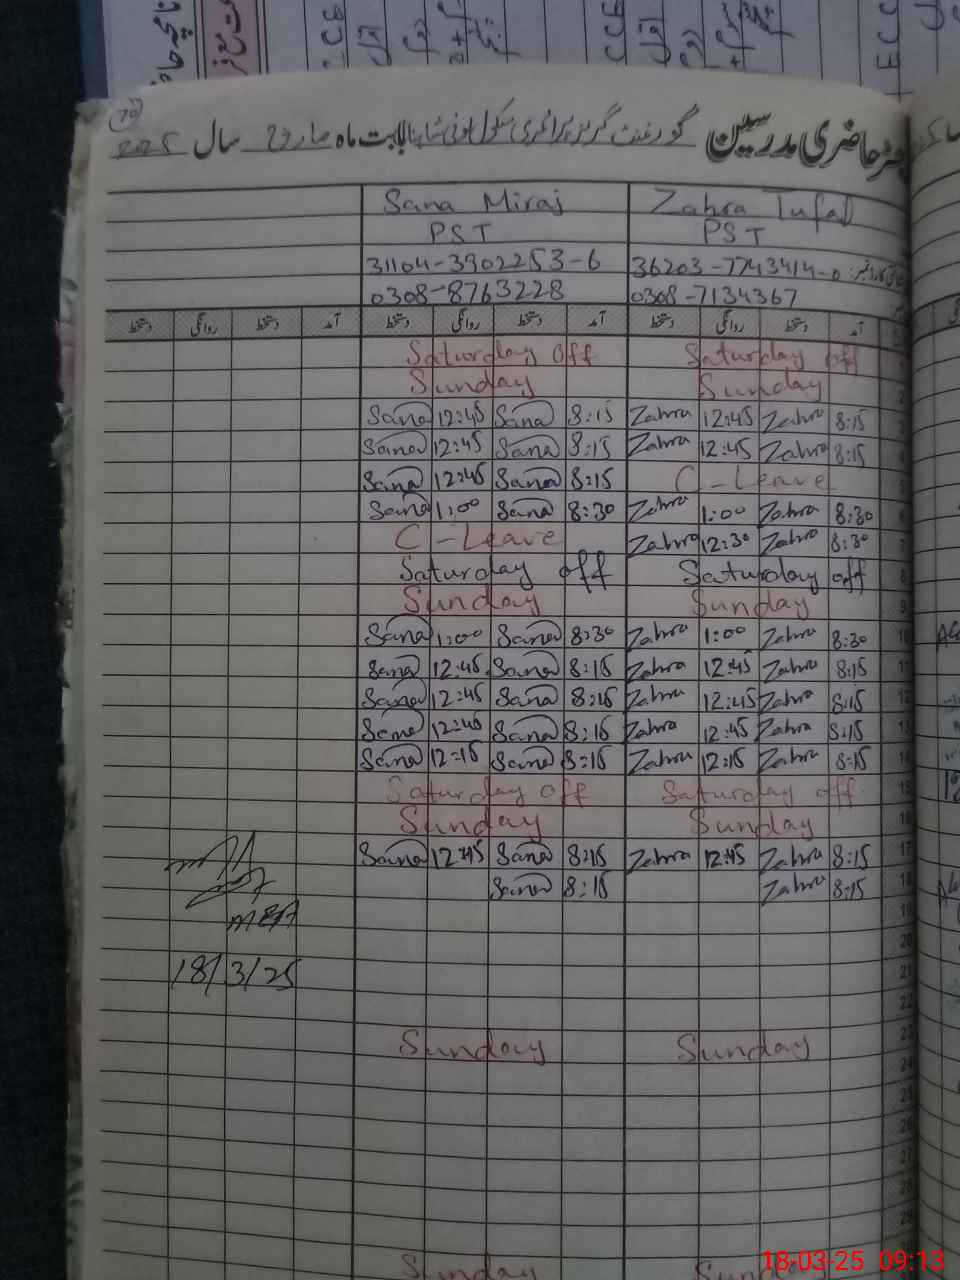 رجسٹر حاضری مدرسین گورنمنٹ گرلز پرائمری سکول بابت ماہ مارچ سال 2025
Sana Miraj Zahra Tufail
PST PST
31104-3902253-6 36203-7743414-0
0308-8763228 0308-7134367
آمد دستخط روانگی دستخط آمد دستخط روانگی دستخط آمد دستخط روانگی دستخط
Saturday off Saturday off 1
Sunday Sunday 2
Sana 12:45 Sana 8:15 Zahra 12:45 Zahra 8:15 3
Sana 12:45 Sana 8:15 Zahra 12:45 Zahra 8:15 4
Sana 12:45 Sana 8:15 C-Leave 5
Sana 1:00 Sana 8:30 Zahra 1:00 Zahra 8:30 6
C-Leave Zahra 12:30 Zahra 8:30 7
Saturday off Saturday off 8
Sunday Sunday 9
Sana 1:00 Sana 8:30 Zahra 1:00 Zahra 8:30 10
Sana 12:45 Sana 8:15 Zahra 12:45 Zahra 8:15 11
Sana 12:45 Sana 8:15 Zahra 12:45 Zahra 8:15 12
Sana 12:45 Sana 8:15 Zahra 12:45 Zahra 8:15 13
Sana 12:15 Sana 8:15 Zahra 12:15 Zahra 8:15 14
Saturday off Saturday off 15
Sunday Sunday 16
Sana 12:45 Sana 8:15 Zahra 12:45 Zahra 8:15 17
Sana 8:15 Zahra 8:15 18
MEA 19
20
18/3/25 21
22
Sunday Sunday 23
24
25
26
27
28
29
Sunday Sunday
18-03-25 09:13